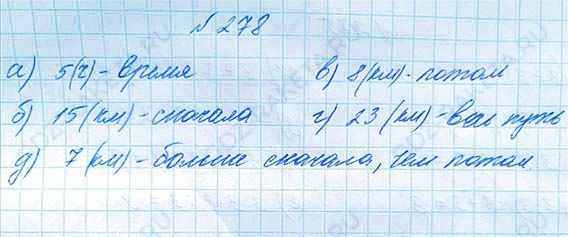 № 278
а) 5(ч) - время в) 8(км) - потом
б) 15(км) - сначала г) 23(км) - весь путь
д) 7(км) - больше сначала, чем потом.